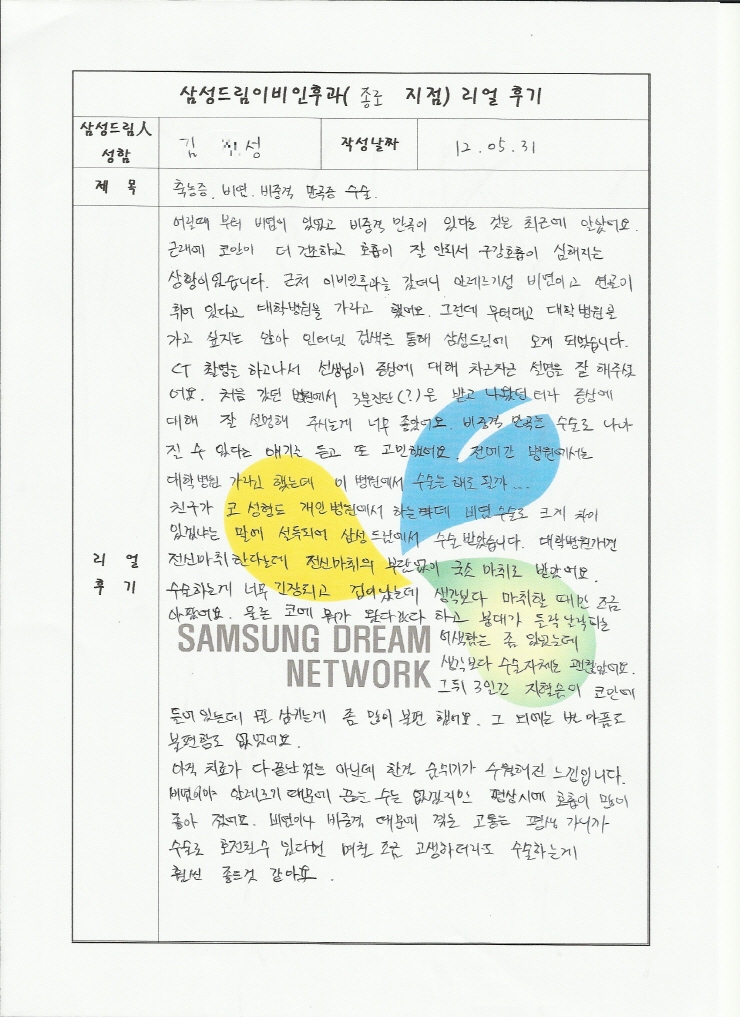 삼성드림이비인후과( 종로 지점) 리얼 후기
삼성드림人
성함
김 성
작성날짜
12.05.31
제 목
축농증. 비염. 비중격 만곡증 수술.
어릴때 부터 비염이 있었고 비중격 만곡이 있다는 것은 최근에 알았어요.
근래에 코안이 더 건조하고 호흡이 잘 안되서 구강호흡이 심해지는
상황이었습니다. 근처 이비인후과를 갔더니 알레르기성 비염이고 연골이
휘어 있다고 대학병원을 가라고 했어요. 그런데 무턱대고 대학병원을
가고 싶지는 않아 인터넷 검색을 통해 삼성드림에 오게 되었습니다.
CT 촬영을 하고나서 선생님이 증상에 대해 차근차근 설명을 잘 해주셨
어요. 처음 갔던 병원에서 3분진단(?)을 받고 나왔던 터라 증상에
대해 잘 설명해 주시는게 너무 좋았어요. 비중격 만곡는 수술로 나아
질 수 있다는 얘기를 듣고 또 고민했어요. 전에간 병원에서는
대학병원 가라고 했는데 이 병원에서 수술을 해도 될까...
친구가 코 성형도 개인병원에서 하는 판에 비염수술로 크게 차이
있겠냐는 말에 설득되어 삼성드림에서 수술 받았습니다. 대학병원가면
리 얼
후 기
전신마취 한다는데 전신마취의 부담없이 국소 마취로 받았어요.
수술하는게 너무 긴장되고 겁이났는데 생각보다 마취할 때만 조금
아팠어요. 물론 코에 뭐가 왔다갔다 하고 붕대가 들락날락하는
어색함는 좀 있었는데
생각보다 수술자체는 괜찮았어요.
그뒤 3일간 지혈솜이 코안에
들어있는데 뭘 삼키는게 좀 많이 불편 했어요. 그 뒤에는 별 아픔도
불편함도 없었어요.
아직 치료가 다 끝난것은 아닌데 한결 숨쉬기가 수월해진 느낌입니다.
비염이야 알레르기 때문에 끊을 수는 없겠지만 평상시에 호흡이 많이
좋아 졌어요. 비염이나 비중격 때문에 겪는 고통는 평생 가니까
수술로 호전될수 있다면 며칠 조금 고생하더라도 수술하는게
훨씬 좋은것 같아요.
SAMSUNG DREAM
NETWORK